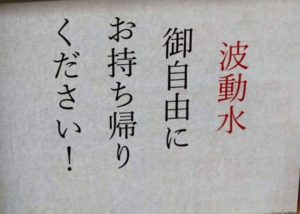 波動水
御自由に
お持ち帰り
ください！